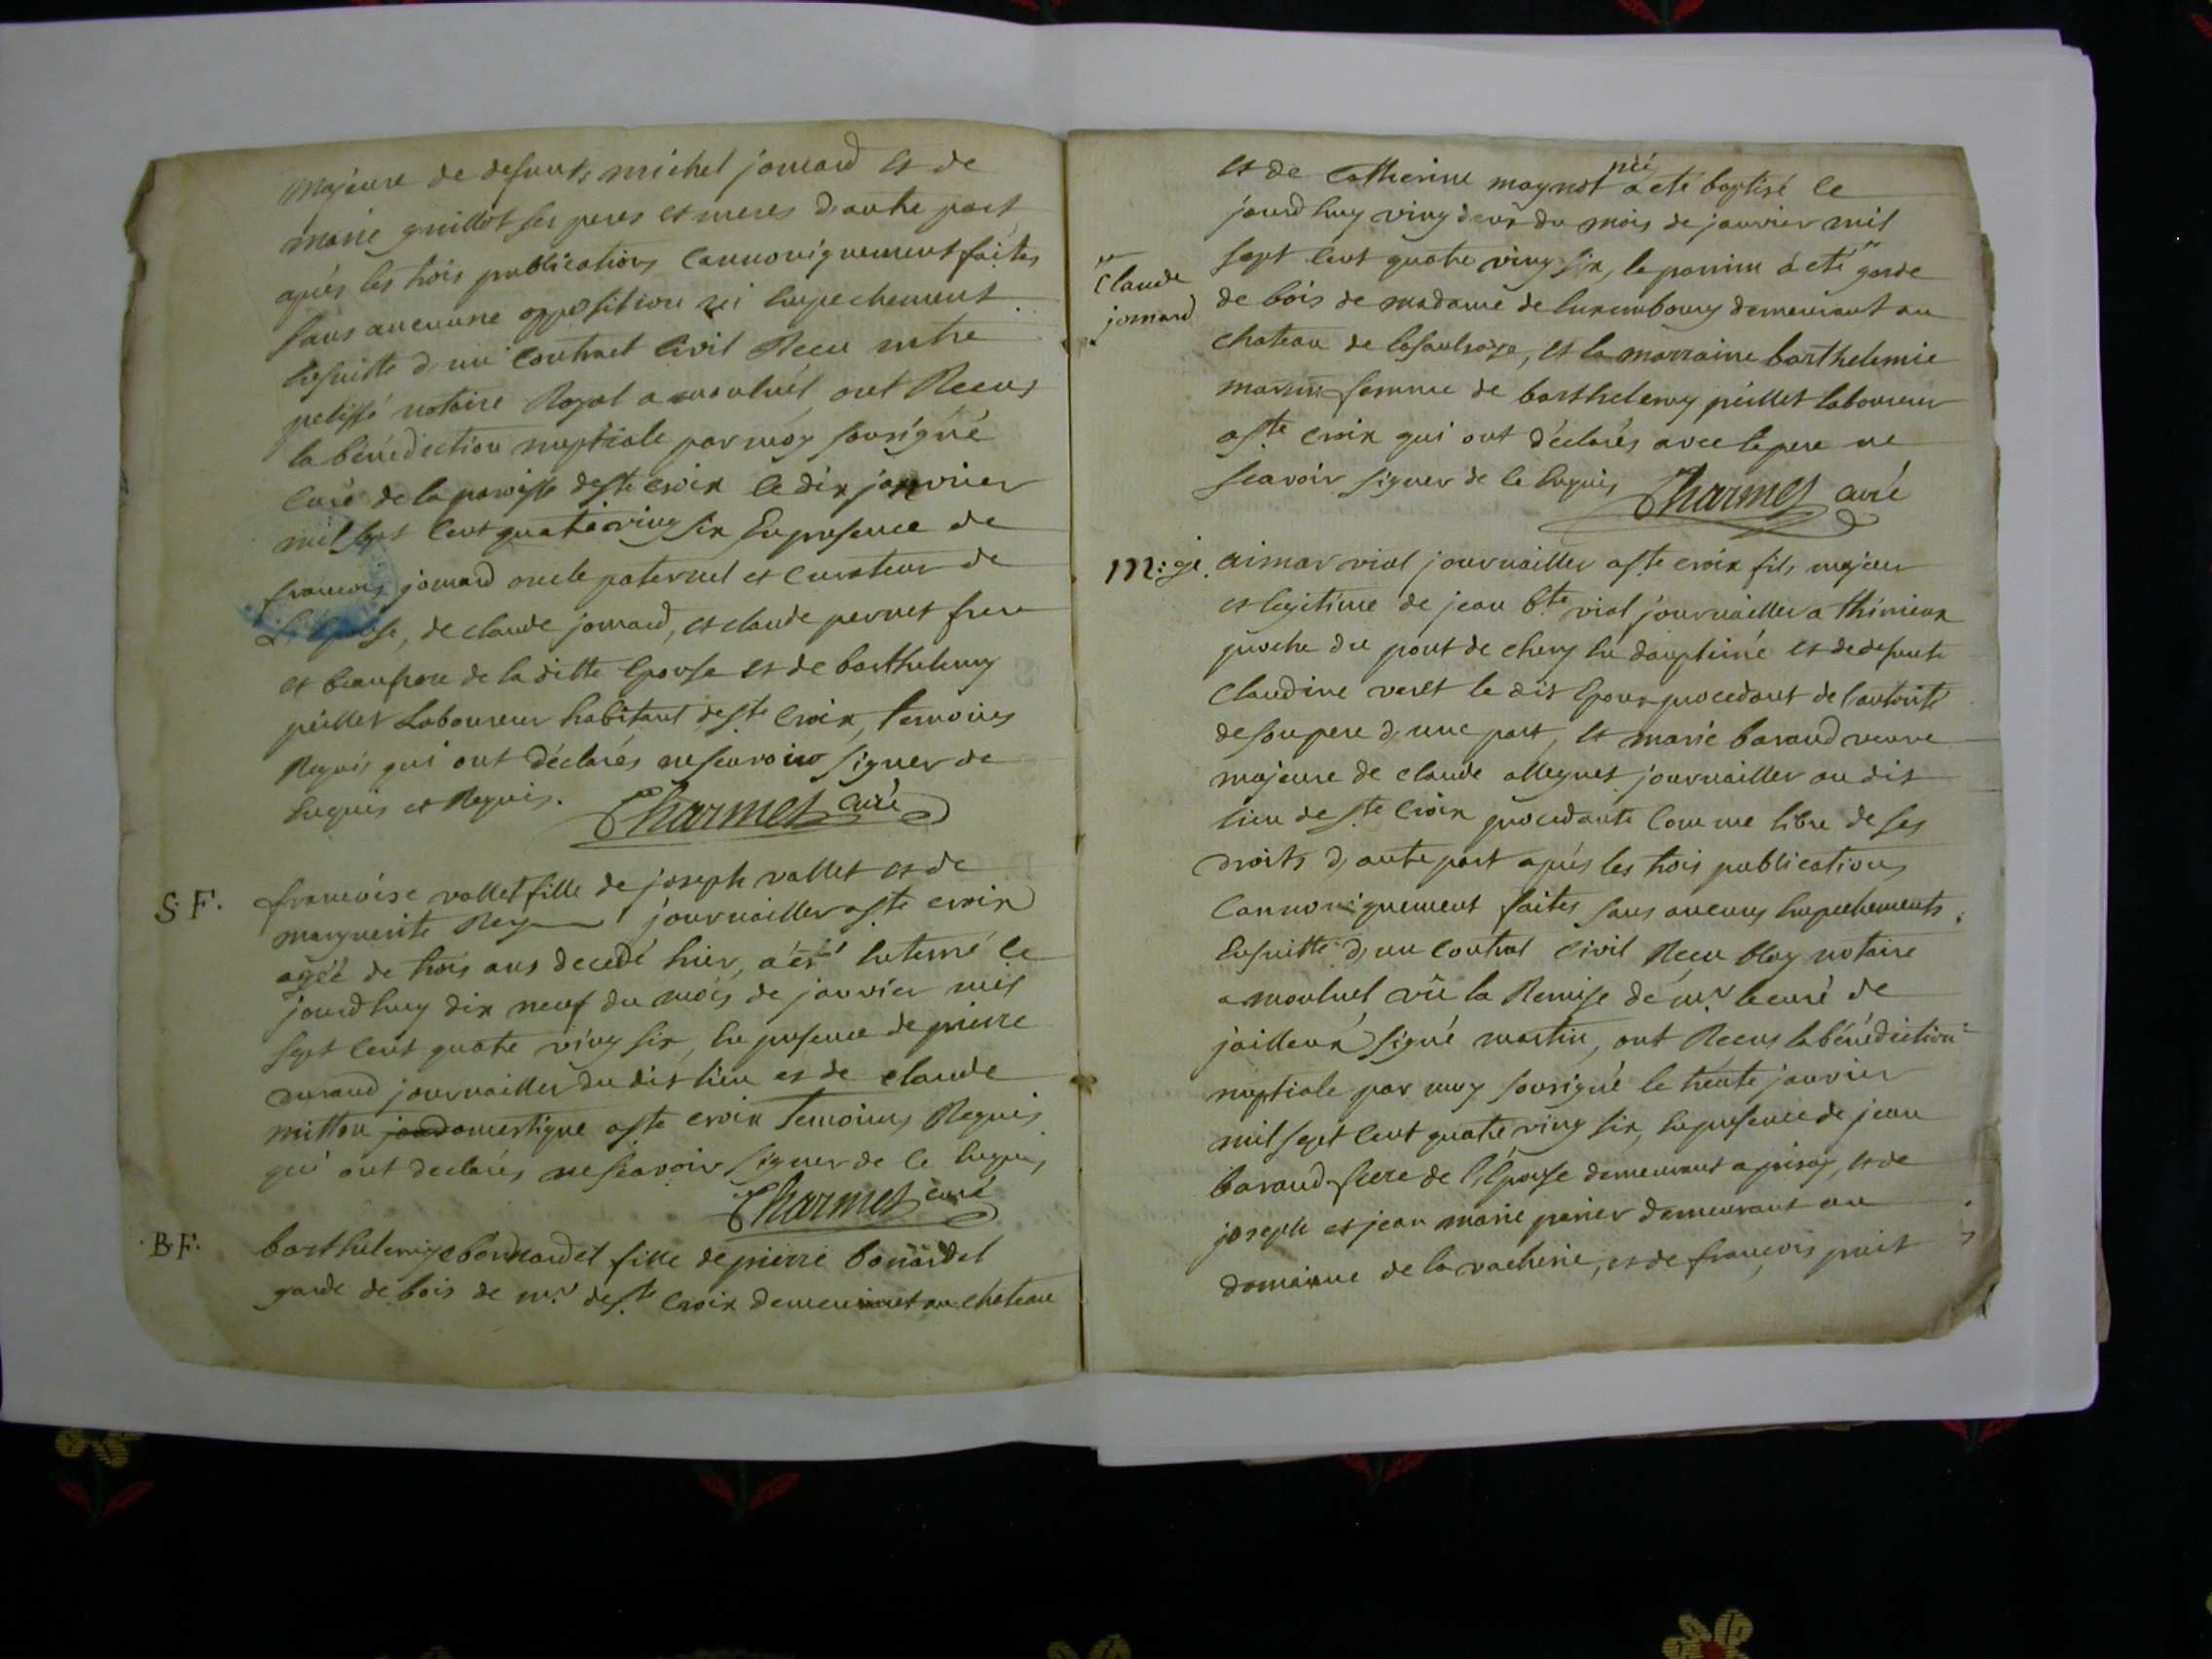 majeure de defunts michel jomard et de
marie guillot ses peres et meres d'autre part
après les trois publications cannoniquement faites
sans aucunne opposition ni empechement
ensuitte d'un contract civil Recu
notaire Royal a montluel ont Recus
la bénédiction nuptiale par moy sousigné
curé de la paroisse de ste croix le dix janvier
mil sept cent quatre ving six En presence de
francois jomard oncle paternel et curateur de
L'épouse, de claude jomard, et claude pernet frere
et beaufrere de la ditte épouse et de barthelemy
péillet Laboureur habitant de ste Croix, temoins
Requis qui ont déclarés ne scavoir signer de
enquis et Requis. Charmet curé
S. F. francoise vallet fille de joseph vallet et de
marguerite Rey journailler a ste croix
agéé de trois ans decedé hier, a été enterré le
jourdhuy dix neuf du mois de janvier mil
sept cent quatre ving six, en presence de pierre
durand journailler du dit lieu et de claude
mitton domestique a ste croix temoins Requis
qui ont declarés ne scavoir signer de ce enquis
Charmet curé
B. F. barthelemye bonnardel fille de pierre bonardel
garde de bois de mr de ste Croix demeurant au chateau
et de Catherine magnot néé a eté baptisé le
jourdhuy ving deux du mois de janvier mil
sept cent quatre ving six, le parrein à eté " garde
" Claude jomard
de bois de madame de luxembourg demeurant au
chateau de lasaulsaye, et la marraine barthelemie
marin femme de barthelemy péillet laboureur
a ste croix qui ont déclarés avec le pere ne
scavoir signer de ce enquis Charmet curé
M:ge. aimar vial journailler a ste croix fils majeur
et legitime de jean bte vial journailler a thinieux
proche du pont de chery en dauphiné et de defunte
Claudine veret le dit époux procedant de l'autorité
de son pere d'une part, et marie baraud veuve
majeure de claude allegnet journailler au dit
lieu de ste Croix procedante comme libre de ses
droits d'autre part après les trois publications
Cannoniquement faites sans aucuns empechements,
Ensuitte d'un contrat civil Recu blay notaire
a montluel vû la Remise de mr le curé de
jailleux signé martin, ont Recus la bénédiction
nuptiale par moy sousigné le trente janvier
mil sept cent quatre ving six, en presence de jean
baraud frere de l'épouse demeurant a prisay, et de
joseph et jean marie perier demeurant au
domainne de la vacherie, et de francois puit